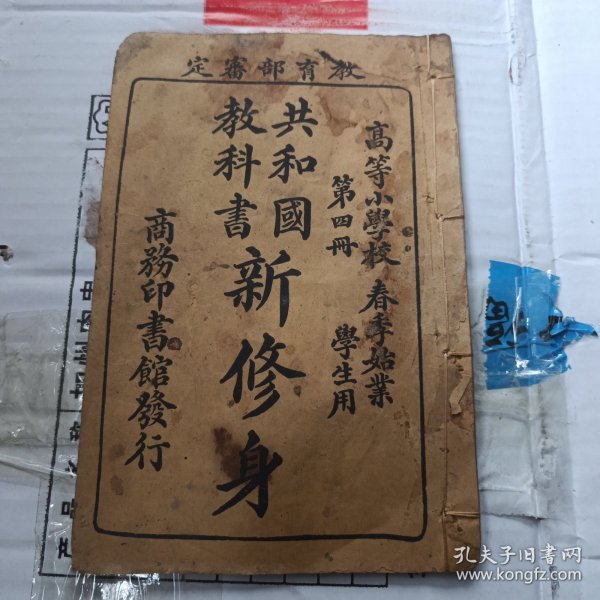 教育部審定
高等小學校春季始業
第四冊 學生用
共和國
教科書
新修身
商務印書館發行
孔夫子旧书网
www.kongfz.com